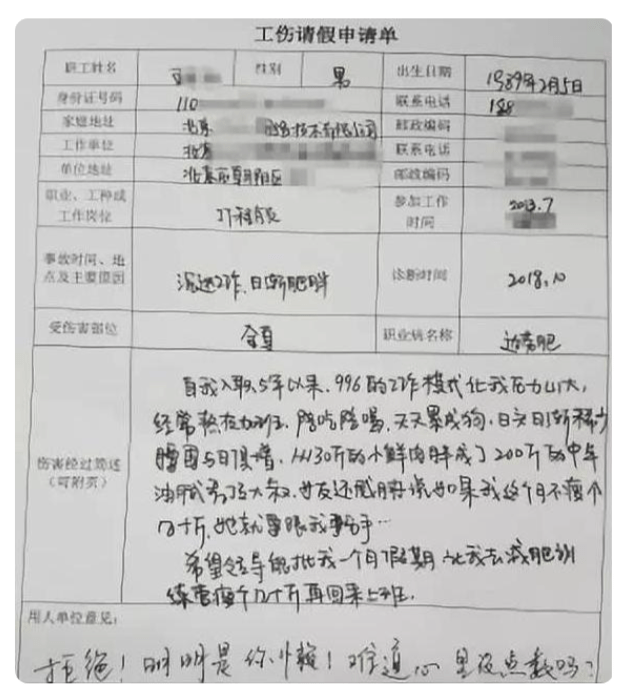 工伤请假申请单
职工姓名 性别 男 出生日期 1989年2月5日
身份证号码 110 联系电话 188
家庭地址 北京 技术有限公司 邮政编码
工作单位 北京 联系电话
单位地址 北京市朝阳区 邮政编码
职业、工种或 工程师 参加工作 2013.7
工作岗位 时间
事故时间、地 沉迷工作、日渐肥胖 诊断时间 2018.10
点及主要原因
受伤害部位 全身 职业病名称 过劳肥
自我入职5年以来、996的工作模式让我压力山大,
经常熬夜加班、陪吃陪喝、天天累成狗、日渐稀少
腰围与日俱增、从130斤的小鲜肉胖成了200斤的中年
伤害经过简述
(可附页)
油腻秃顶大叔、女友还威胁说如果我这个月不瘦个
几十斤、她就要跟我分手…
希望领导能批我一个月假期 让我去减肥训
练营瘦个几十斤再回来上班.
用人单位意见:
拒绝!明明是你懒!难道心里没点数吗?